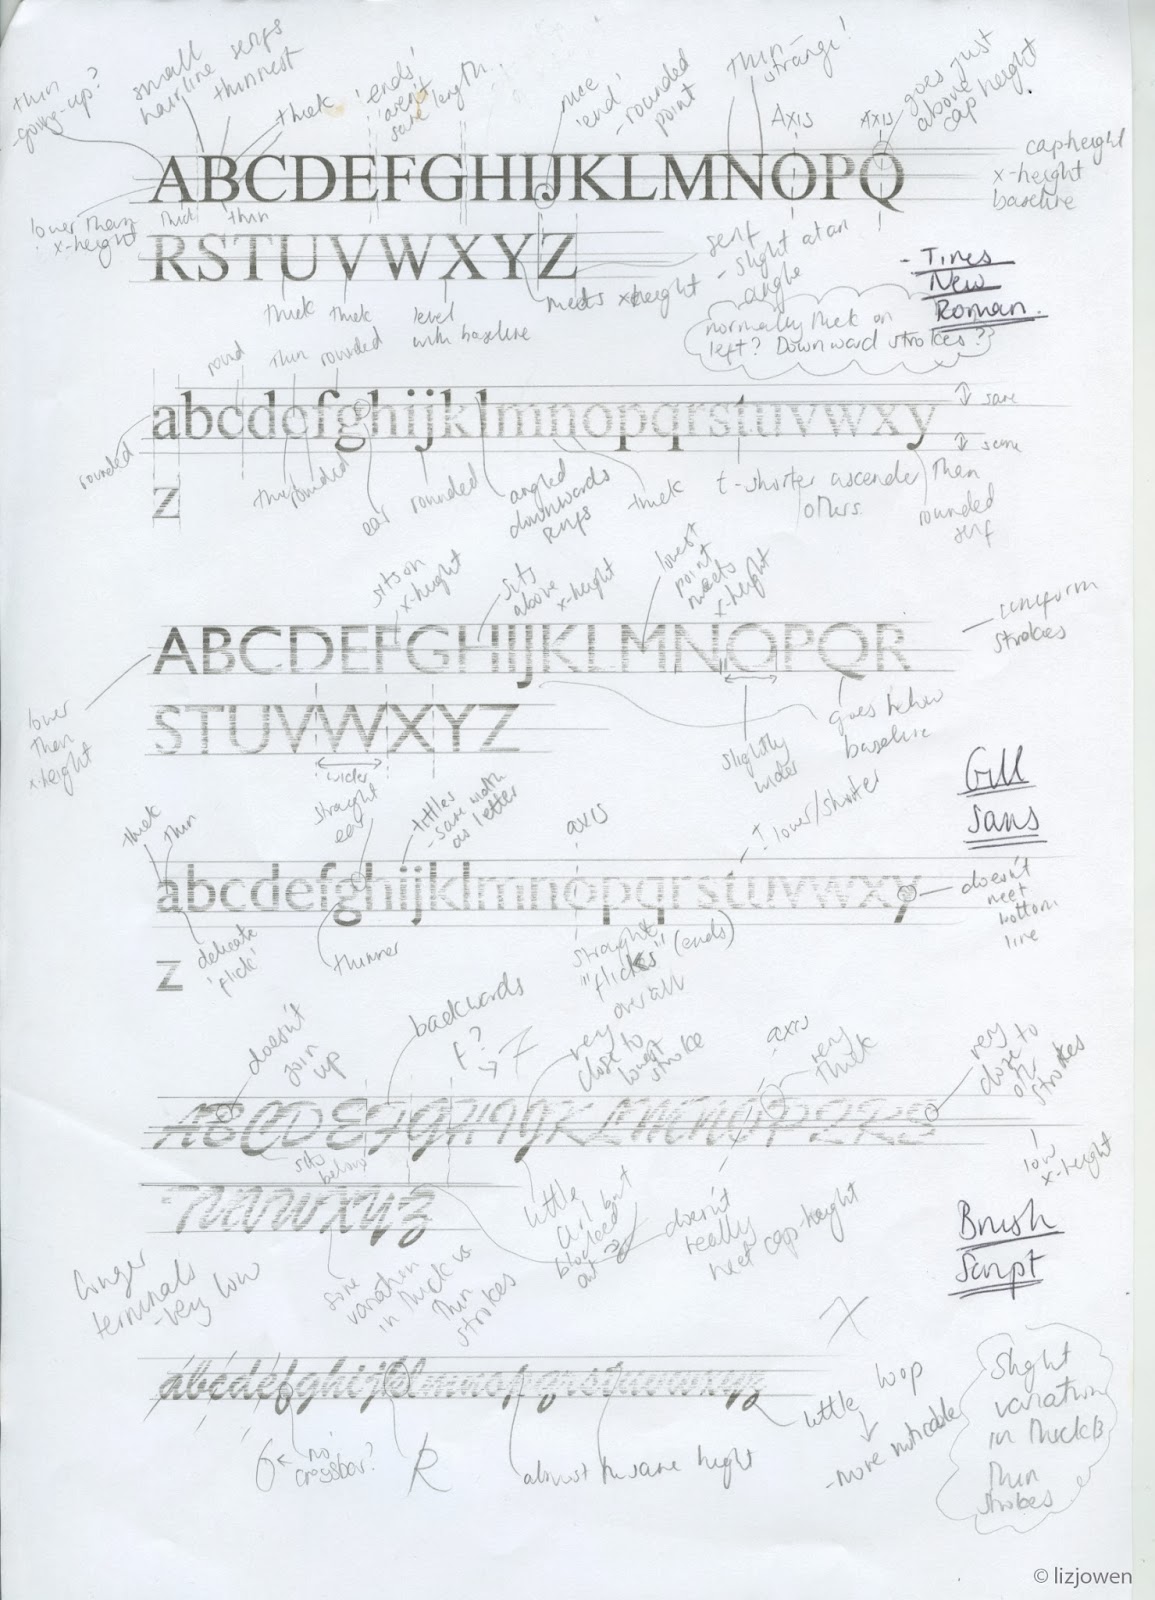 thin
-going-up?
small
hairline serifs
thinnest
thick
'ends'
aren't
same length
nice
'end'
-rounded
point
thin
strange!
Axis
Axis
goes just
above
cap height
ABCDEFGHIJKLMNOPQ
cap height
x-height
baseline
lower than
x-height
thick
thin
RSTUVWXYZ
serif
- slight at an
angle
meets x-height
- Times
New
Roman.
thick
thick
level
with baseline
normally thick on
left? Downward strokes?
round
thin
rounded
abcdefghijklmnopqrstuvwxy
same
same
z
rounded
thin
rounded
ear
rounded
angled
downwards
serifs
thick
t-shorter ascender than
others
rounded
serif
sits on
x-height
sits
above
x-height
lowest
point
meets
x-height
ABCDEFGHIJKLMNOPQR
uniform
strokes
STUVWXYZ
lower
than
x-height
wider
slightly
wider
goes below
baseline
Gill
Sans
thick
thin
straight
ear
tittles
-same width
as letter
axis
T lower/shorter
abcdefghijklmnopqrstuvwxy
doesn't
meet
bottom
line
z
delicate
'flick'
thinner
straight
"flicks" (ends)
overall
doesn't
join
up
backwards
f?
very
close to
lowest
stroke
axis
very
thick
very
close to
strokes
ABCDEFGHIJKLMNOPQRS
sits
below
low
x-height
TUVWXYZ
little
curl but
blocked
out
doesn't
really
meet cap-height
Brush
Script
longer
terminals
-very low
some
variation
in thick vs
thin
strokes
abcdefghijklmnopqrstuvwxyz
no
crossbar?
R
almost the same height
little loop
-more noticable
Slight
variation
in thick &
thin
strokes
© lizjowen